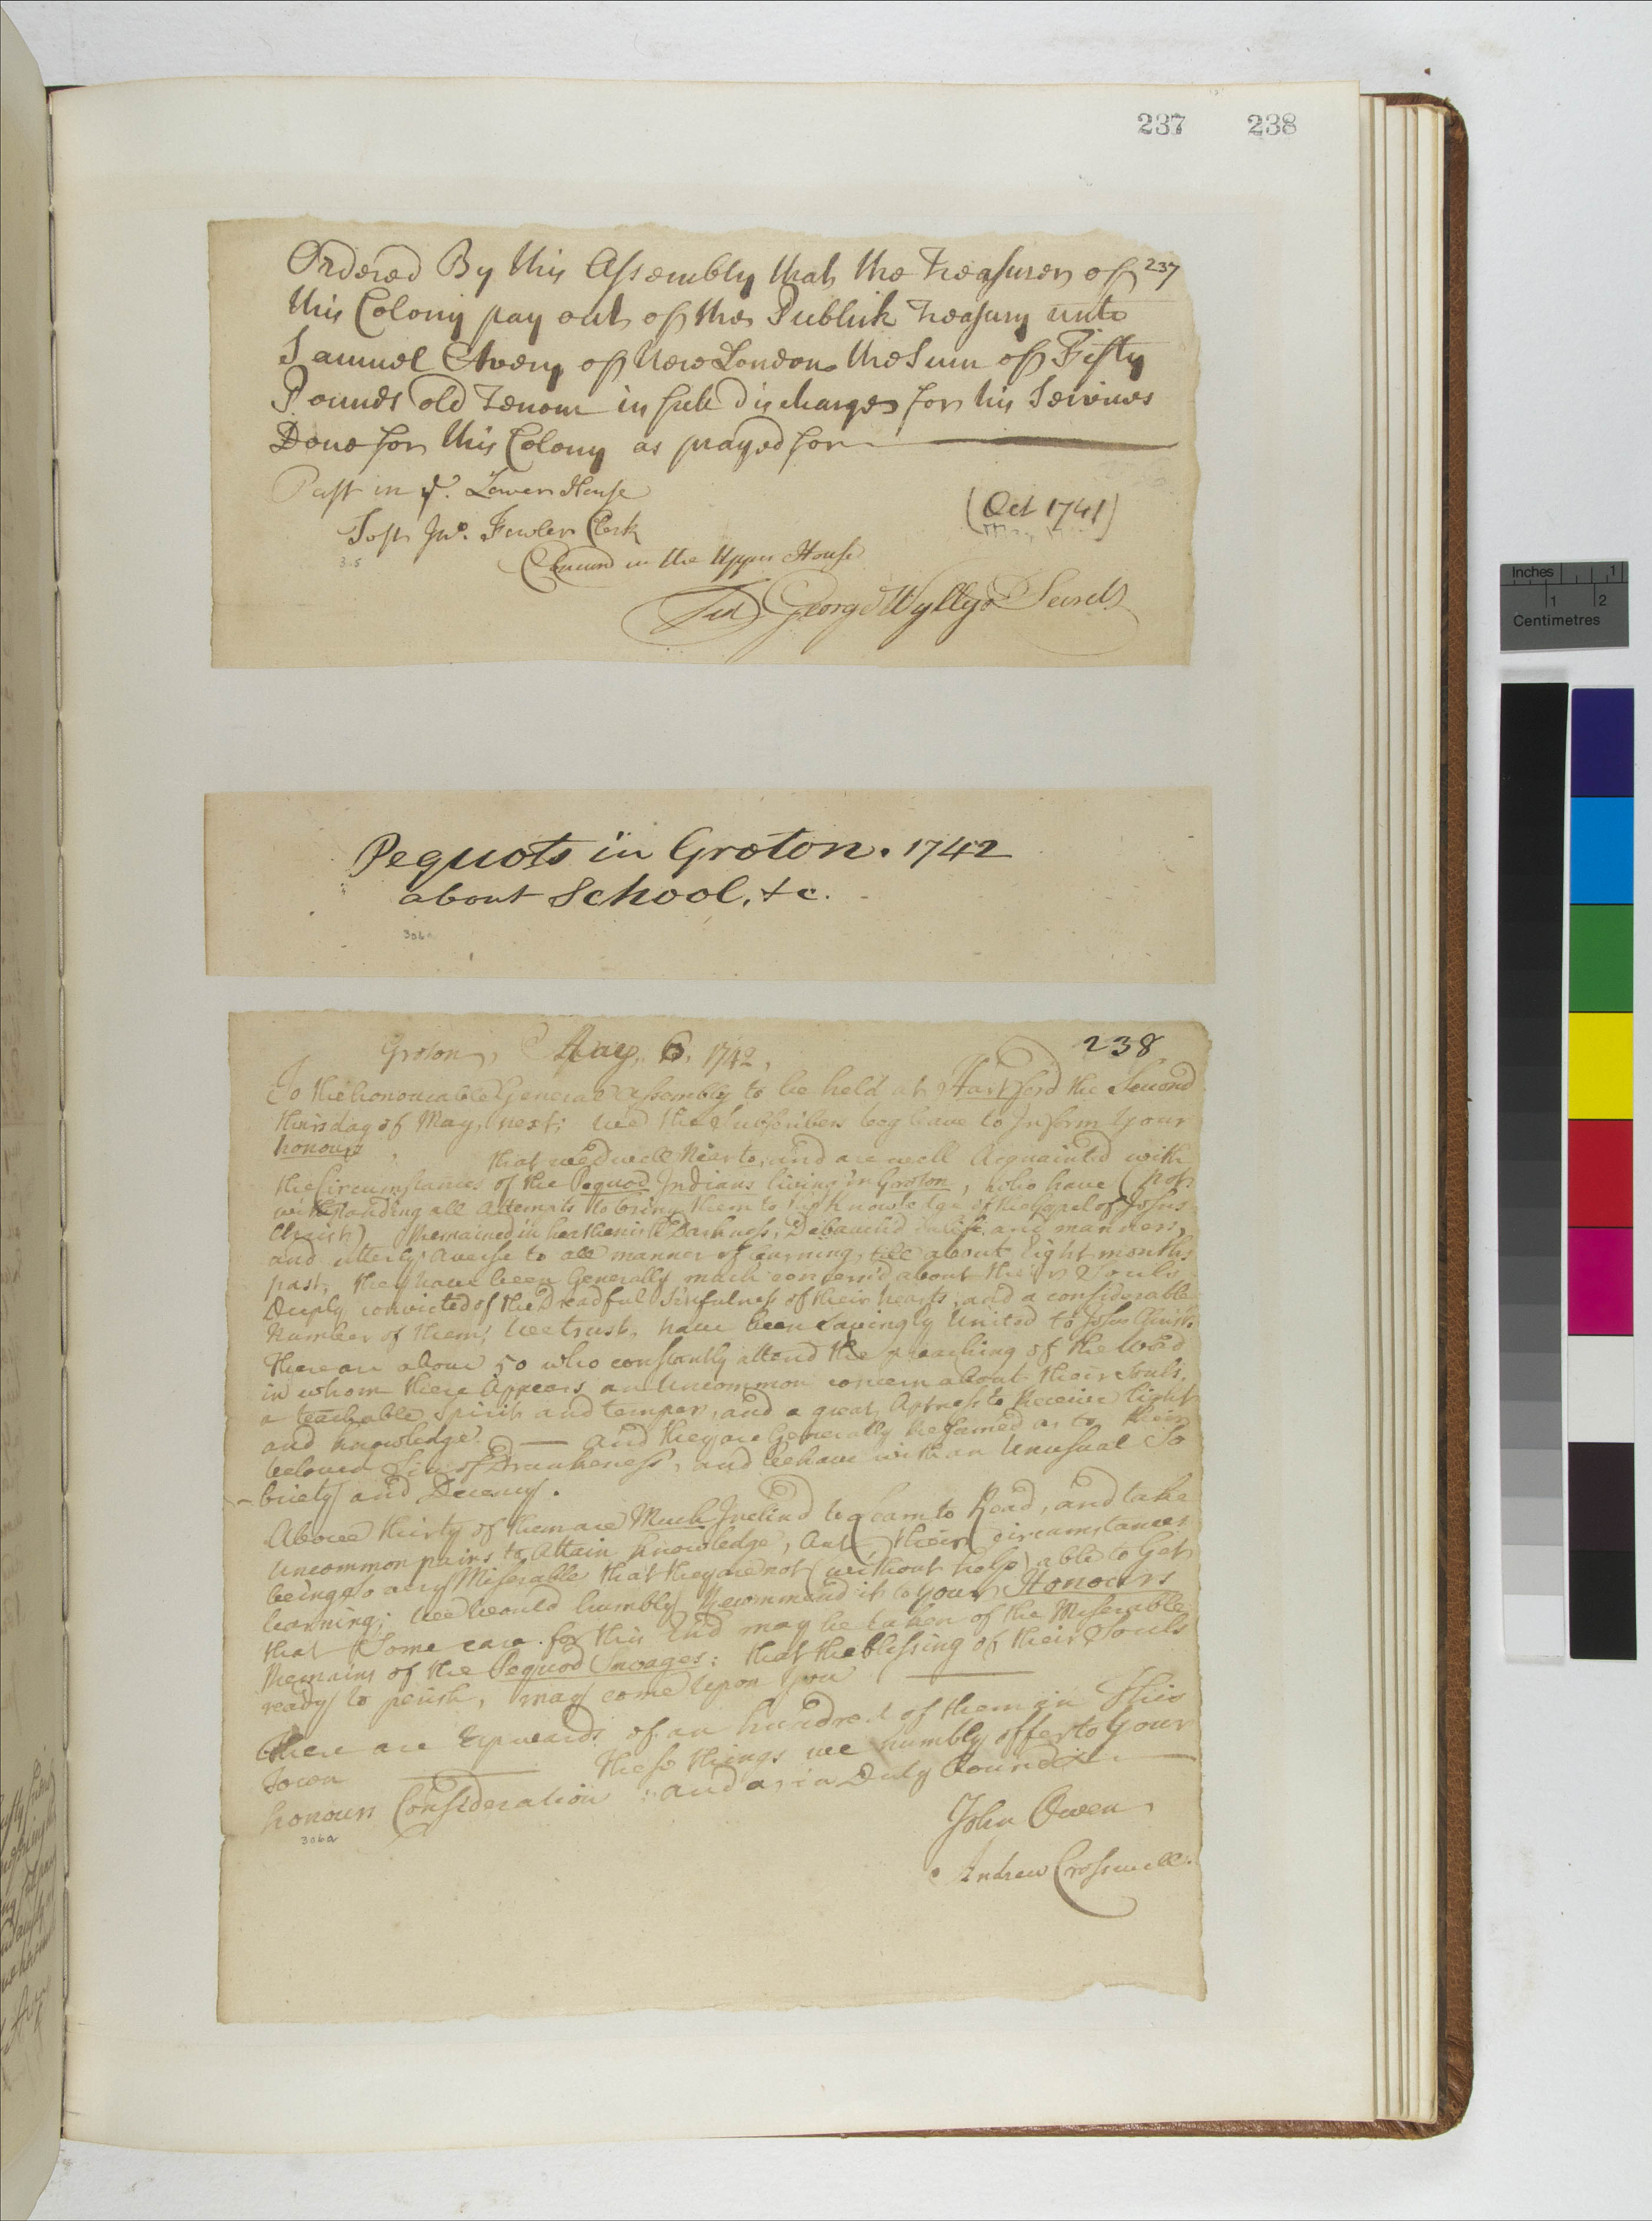 237 238
Ordered By this Assembly that the Treasurer of 237
this Colony pay out of the Publick Treasury unto
Samuel Avery of New London the Sum of Fifty
Pounds old Tenour in full discharge for his Services
Done for this Colony as prayed for
Past in ye. Lower House
(Oct 1741)
Test Jno. Fowler Clerk
3.5
Concurrd in the Upper House
Test George Wyllys Secrety
Pequots in Groton. 1742
about School, &c.
306a
Groton, May, 6, 1742,
238
To the honourable General Assembly to be held at Hartford the Second
thirsday of May, next; we the Subscribers beg leave to Inform your
honours, that we dwell Near to, and are well Acquainted with
the Circumstances of the Pequod Indians living in Groton, who have (not
withstanding all Attempts to bring them to the Knowledge of the Gospel of Jesus
Christ) Remained in heathenish Darkness, Debauch'd in life, and manners,
and utterly averse to all manner of learning, till about Eight months
past, they have been Generally much concern'd about their Souls
Deeply convicted of the Dreadful Sinfulness of their hearts, and a considerable
Number of them, we trust, have been Savingly United to Jesus Christ.
there are above 50 who constantly attend the preaching of the word
in whom there Appears an Uncommon concern about their Souls,
a teachable Spirit and temper, and a great Aptness to Receive light
and knowledge. — and they are Generally Reformed as to their
beloved Sin of Drunkeness, and behave with an Unusual So
briety and Decency.
Above thirty of them are Much Inclin'd to learn to Read, and take
Uncommon pains to Attain knowledge, but their circumstances
being so very Miserable that they are not (without help) able to Get
learning; we would humbly Recommend it to your Honours
that Some care for this End may be taken of the Miserable
Remains of the Pequod Savages: that the blessing of their Souls
ready to perish, may come upon you
There are Upwards of an hundred of them in this
Town These things we humbly offer to your
honours Consideration: and as in Duty bound
306a
John Owen,
Andrew Crosswell.